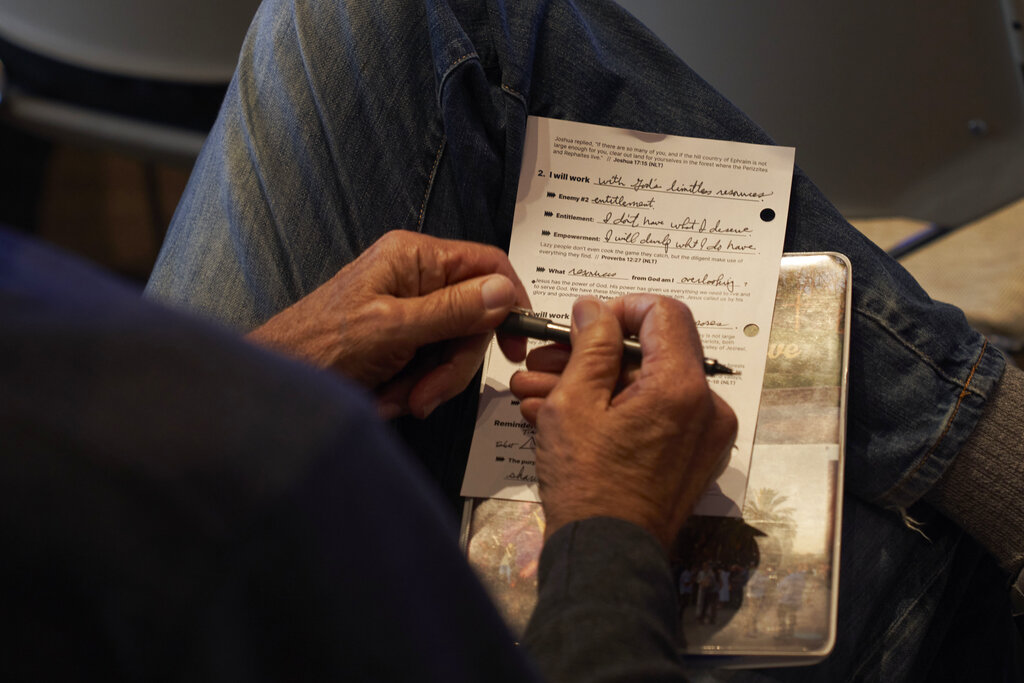 Joshua replied, "If there are so many of you, and if the hill country of Ephraim is not
large enough for you, clear out land for yourselves in the forest where the Perizzites
and Rephaites live." // Joshua 17:15 (NLT)
2. I will work with God's limitless resources.
Enemy #2 entitlement.
Entitlement: I don't have what I deserve
Empowerment: I will develop what I do have.
Lazy people don't even cook the game they catch, but the diligent make use of
everything they find. // Proverbs 12:27 (NLT)
What resources from God am I overlooking?
Jesus has the power of God. His power has given us everything we need to live and
to serve God. We have these things him. Jesus called us by his
glory and goodness
will work
is not large
both
valley of Jezreel.
(NLT)
Reminde
The purp
ve